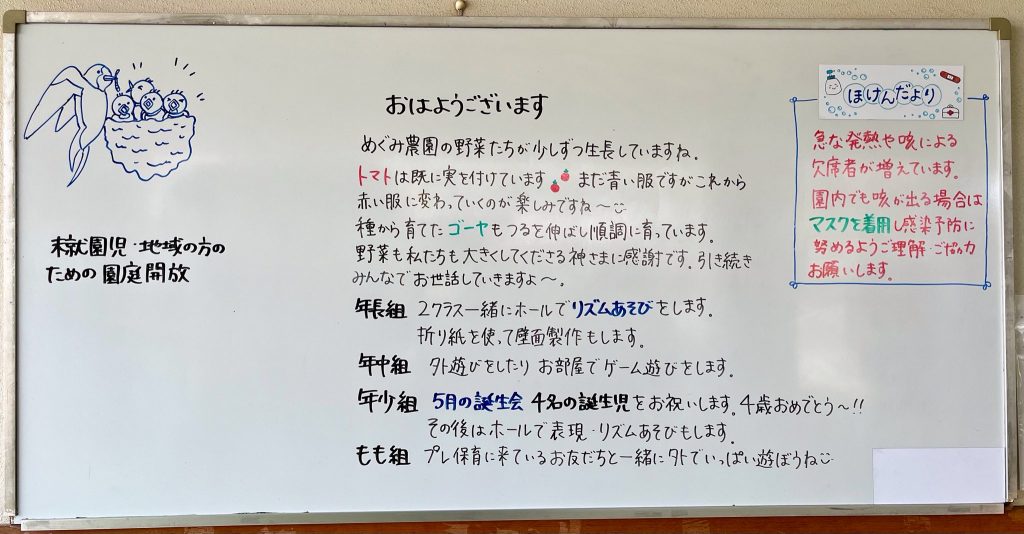 おはようございます
めぐみ農園の野菜たちが少しずつ生長していますね。
トマトは既に実を付けています まだ青い服ですがこれから
赤い服に変わっていくのが楽しみですね〜
種から育てた ゴーヤもつるを伸ばし順調に育っています。
野菜も私たちも大きくしてくださる神さまに感謝です。引き続き
みんなでお世話していきますよ〜。
年長組 2クラス一緒にホールでリズムあそびをします。
折り紙を使って壁面製作もします。
年中組 外遊びをしたり お部屋でゲーム遊びをします。
年少組 5月の誕生会 4名の誕生児をお祝いします。4歳おめでとう〜!!
その後はホールで表現・リズムあそびもします。
もも組 プレ保育に来ているお友だちと一緒に外でいっぱい遊ぼうね
未就園児・地域の方の
ための園庭開放
ほけんだより
急な発熱や咳による
欠席者が増えています。
園内でも咳が出る場合は
マスクを着用し感染予防に
努めるようご理解・ご協力
お願いします。